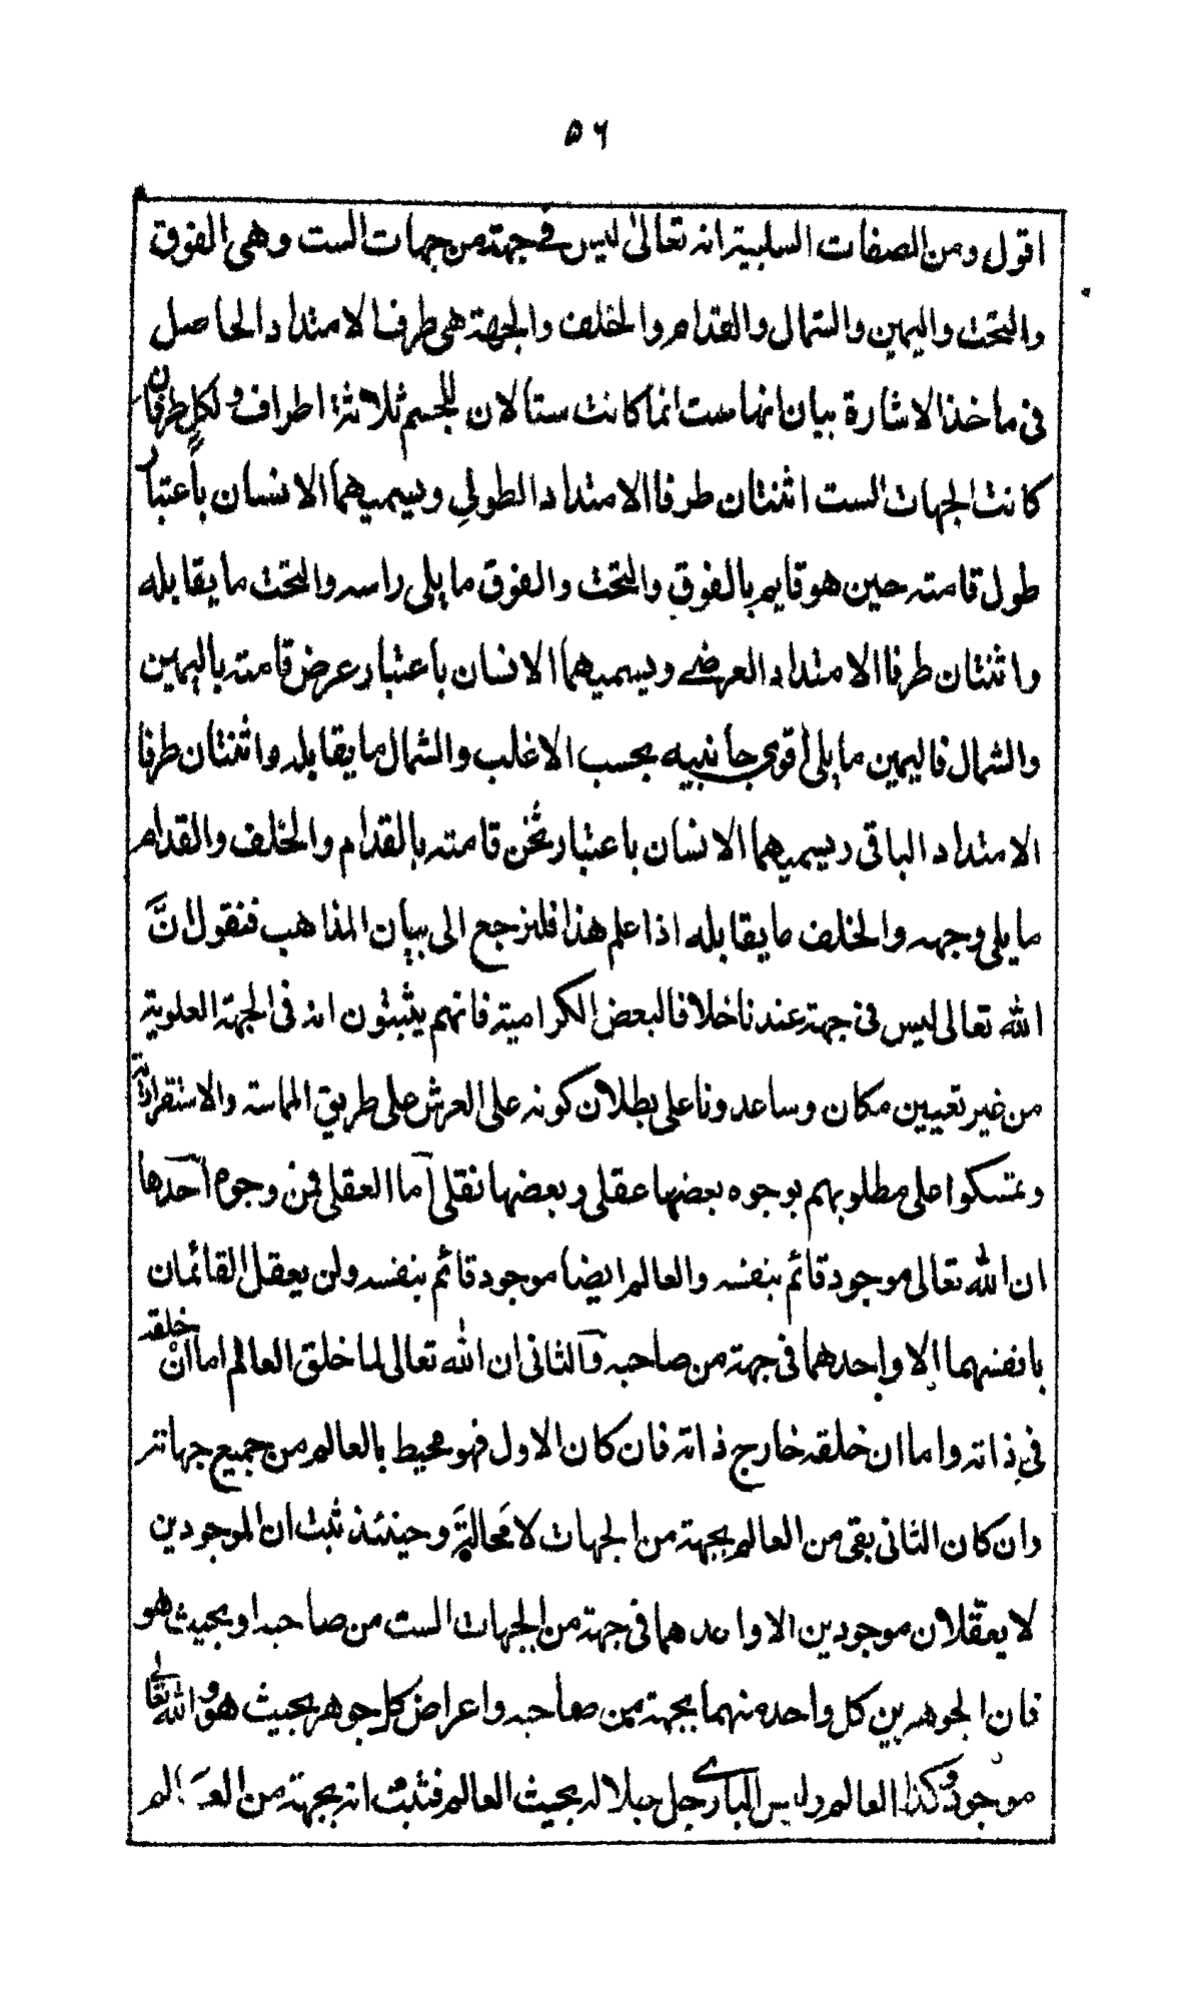 ٥٦
اقول ومن الصفات السلبية انه تعالى ليس في جهة من جهات الست وهي الفوق
والتحت واليمين والشمال والقدام والخلف والجهة هي طرف الامتداد الحاصل
في ماخذ الاشارة بيان انها ست انما كانت ستا لان للجسم ثلاثة اطراف ولكل طرفان
كانت الجهات الست اثنتان طرفا الامتداد الطولي ويسميهما الانسان باعتبار
طول قامته حين هو قايم بالفوق والتحت والفوق ما يلي راسه والتحت ما يقابله
واثنتان طرفا الامتداد العرضي ويسميهما الانسان باعتبار عرض قامته باليمين
والشمال فاليمين ما يلي أقوى جانبيه بحسب الاغلب والشمال ما يقابله واثنتان طرفا
الامتداد الباقي ويسميهما الانسان باعتبار ثخن قامته بالقدام والخلف والقدام
ما يلي وجهه والخلف ما يقابله اذا علم هذا فلنرجع الى بيان المذاهب فنقول انَّ
الله تعالى ليس في جهة عندنا خلافا لبعض الكرامية فانهم يثبتون انه في الجهة العلوية
من غير تعيين مكان وساعدونا على بطلان كونه على العرش على طريق المماسة والاستقرارية
وتمسكوا على مطلوبهم بوجوه بعضها عقلي وبعضها نقلي آما العقلي فمن وجوه آحدها
ان الله تعالى موجود قائم بنفسه والعالم ايضا موجود قائم بنفسه ولن يعقل القائمان
بانفسهما الا واحدهما في جهة من صاحبه وآلثاني ان الله تعالى لما خلق العالم اما انْ خلقه
في ذاته واما ان خلقه خارج ذاته فان كان الاول فهو محيط بالعالم من جميع جهاته
وان كان الثاني بقي من العالم بجهة من الجهات لا مَحالةَ وحينئذ ثبت ان الموجودين
لا يعقلان موجودين الا واحدهما في جهة من الجهات الست من صاحبه او بحيث هو
فان الجوهرين كل واحد منهما بجهة من صاحبه واعراض كل جوهر بحيث هو والله تعالى
موجود وكذا العالم وليس الباري جل جلاله بحيث العالم فثبت انه بجهة من العالم